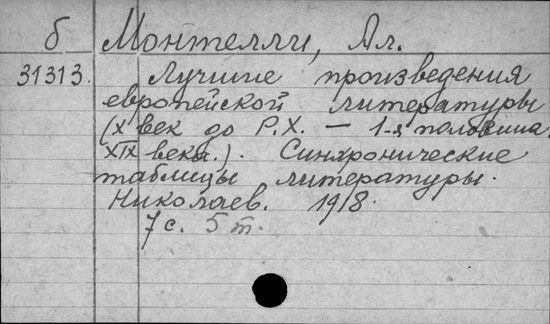 б Монтелли, Ал.
31313. Лучшие произведения
европейской литературы
(X век до Р.Х. — 1-я половина
XIX века.). Синхронические
таблицы литературы.
Николаев. 1918.
7 с. 5 т.